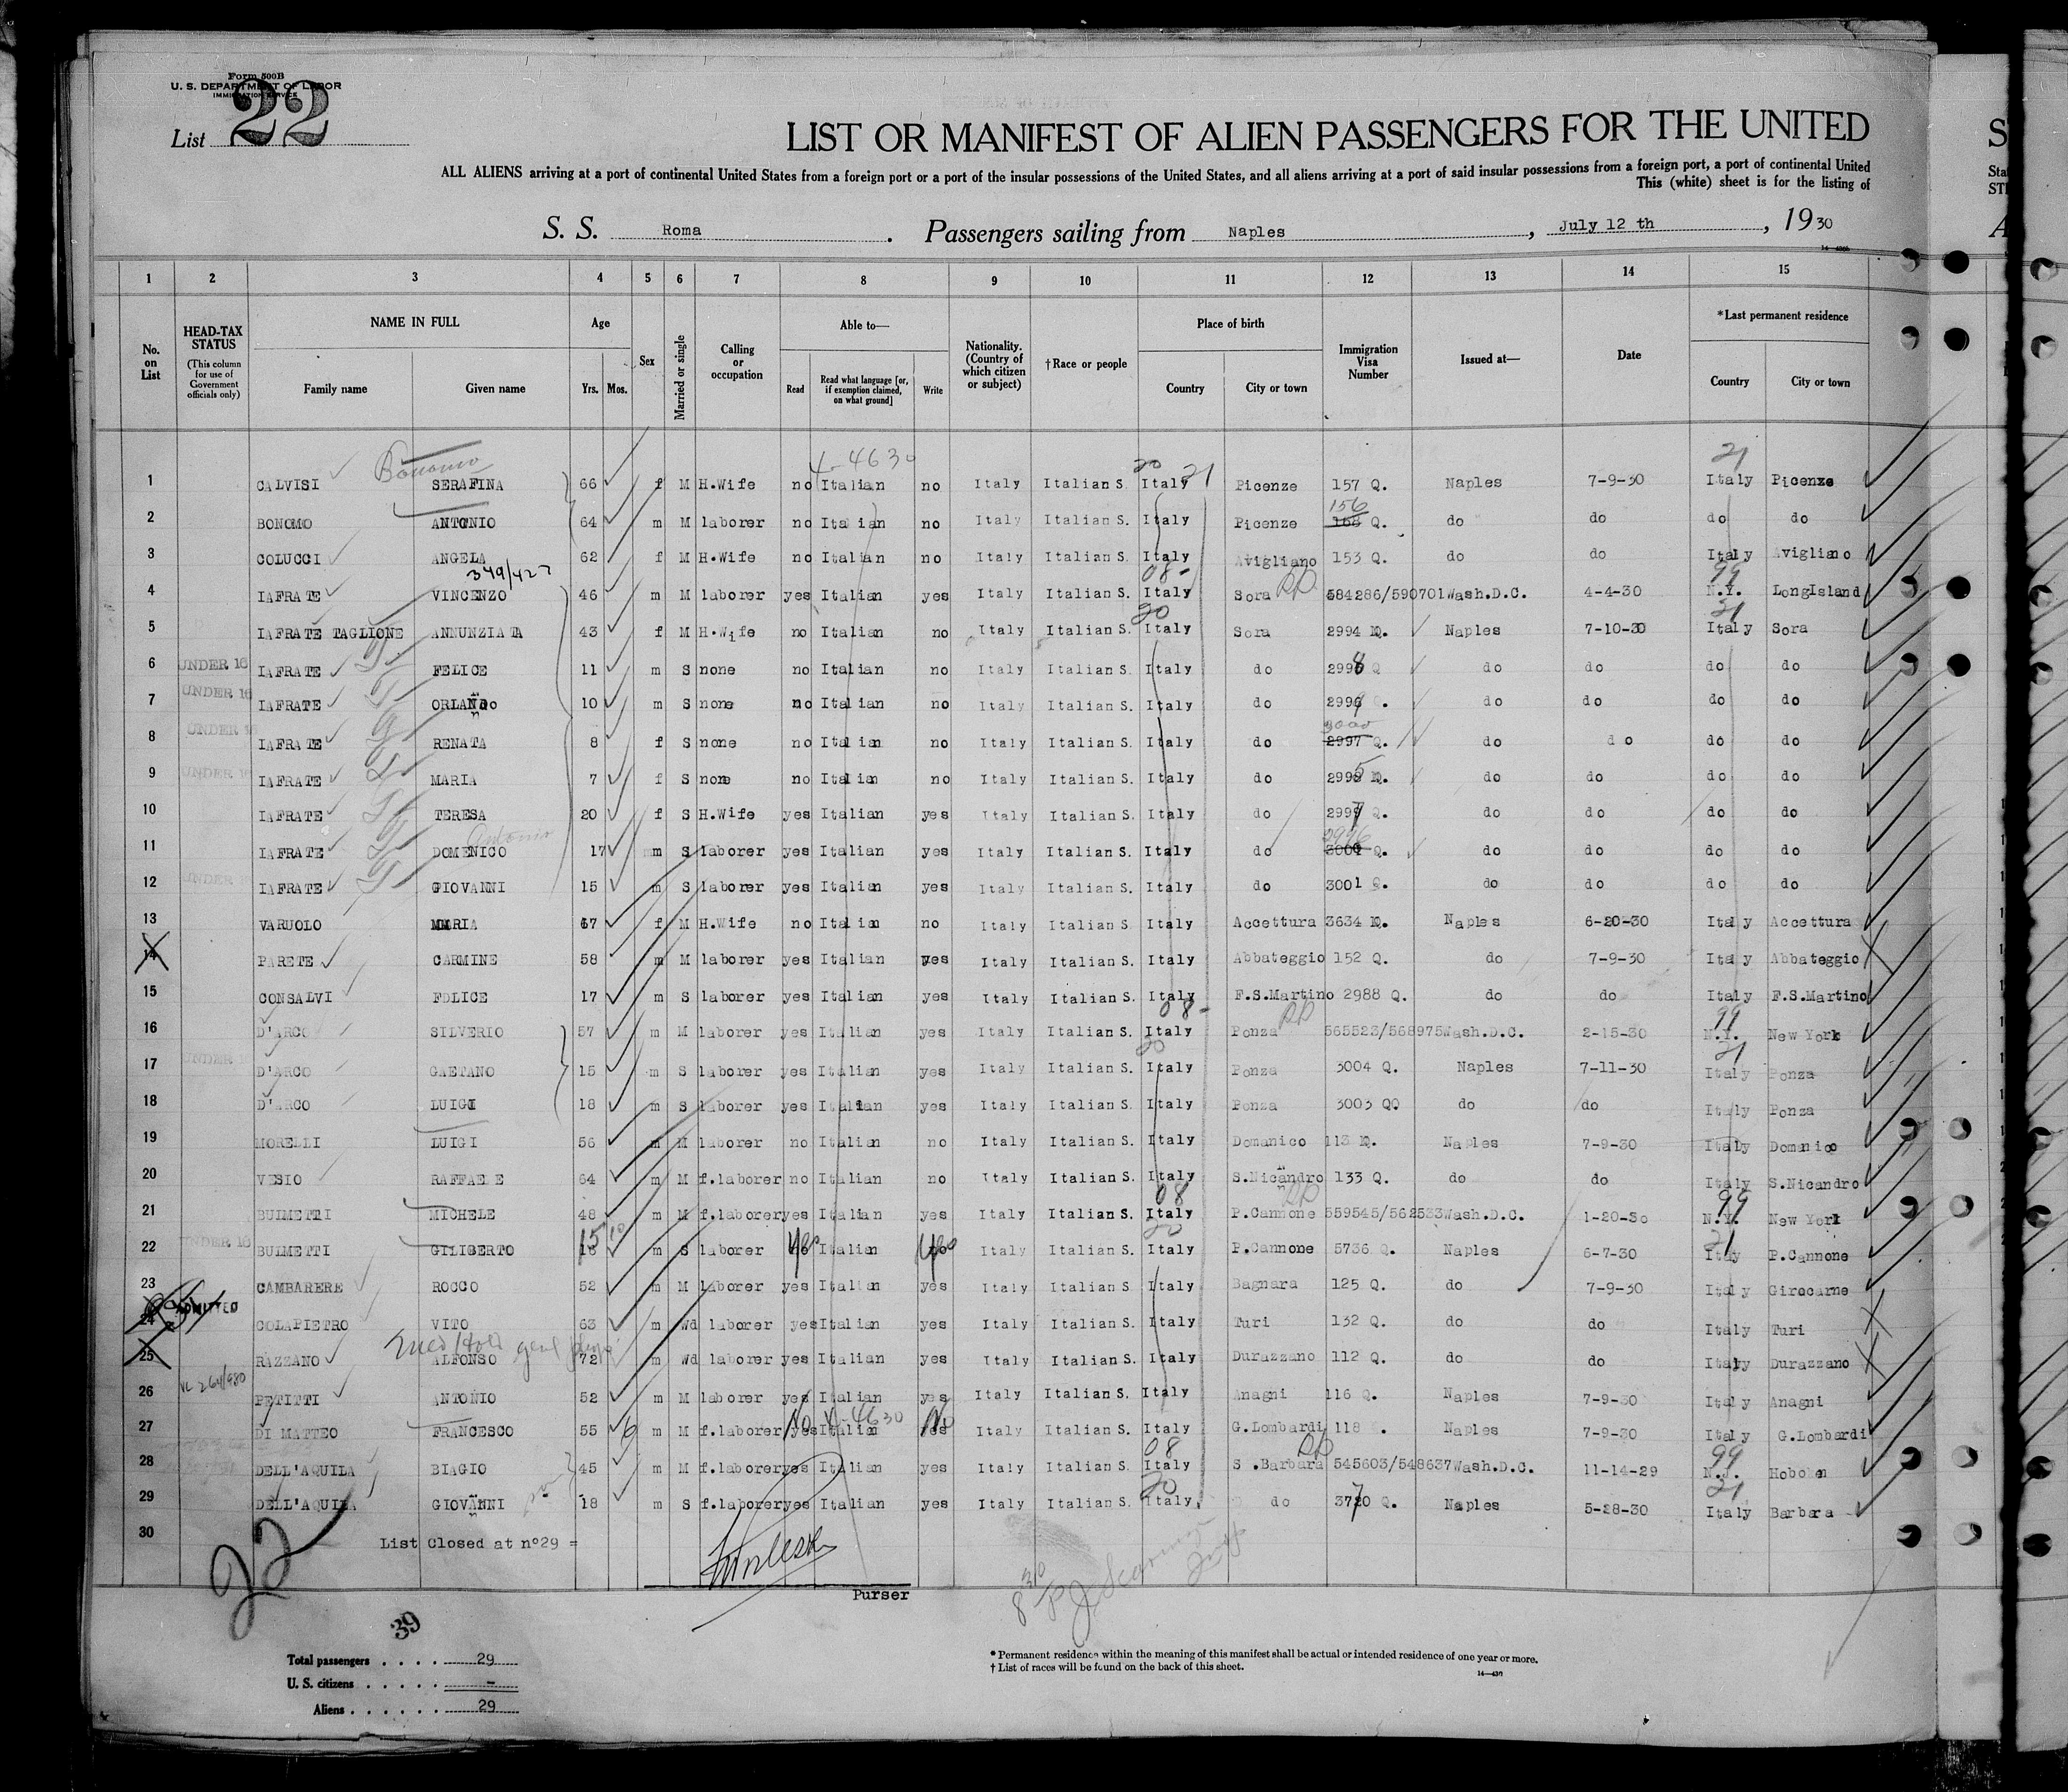 Form 500B
U. S. DEPARTMENT OF LABOR
IMMIGRATION SERVICE
List 22
LIST OR MANIFEST OF ALIEN PASSENGERS FOR THE UNITED
ALL ALIENS arriving at a port of continental United States from a foreign port or a port of the insular possessions of the United States, and all aliens arriving at a port of said insular possessions from a foreign port, a port of continental United
This (white) sheet is for the listing of
S. S. Roma. Passengers sailing from Naples, July 12 th, 1930
1 2 3 4 5 6 7 8 9 10 11 12 13 14 15
No. on List HEAD-TAX STATUS (This column for use of Government officials only) NAME IN FULL Family name Given name Age Yrs. Mos. Sex Married or single Calling or occupation Able to— Read Read what language [or, if exemption claimed, on what ground] Write Nationality. (Country of which citizen or subject) †Race or people Place of birth Country City or town Immigration Visa Number Issued at— Date *Last permanent residence Country City or town
Bonomo 4-4630 20 21 21
1 CALVISI SERAFINA 66 f M H.Wife no Italian no Italy Italian S. Italy Picenze 157 Q. Naples 7-9-30 Italy Picenze
156
2 BONOMO ANTONIO 64 m M laborer no Italian no Italy Italian S. Italy Picenze Q. do do do do
3 COLUCCI ANGELA 62 f M H.Wife no Italian no Italy Italian S. Italy Avigliano 153 Q. do do Italy Avigliano
349/427 08- 99
4 IAFRATE VINCENZO 46 m M laborer yes Italian yes Italy Italian S. Italy Sora 584286/590701 Wash.D.C. 4-4-30 N.Y. LongIsland
20 21
5 IAFRATE TAGLIONE ANNUNZIATA 43 f M H.Wife no Italian no Italy Italian S. Italy Sora 2994 Naples 7-10-30 Italy Sora
6 UNDER 16 IAFRATE FELICE 11 m S none no Italian no Italy Italian S. Italy do 2998 Q do do do do
7 UNDER 16 IAFRATE ORLANDO 10 m S none no Italian no Italy Italian S. Italy do do do do do
3000
8 UNDER 16 IAFRATE RENATA 8 f S none no Italian no Italy Italian S. Italy do 2997 Q. do do do do
9 UNDER 16 IAFRATE MARIA 7 f S none no Italian no Italy Italian S. Italy do do do do do
10 IAFRATE TERESA 20 f S H.Wife yes Italian yes Italy Italian S. Italy do 2997 Q. do do do do
Antonio 2996
11 IAFRATE DOMENICO 17 m S laborer yes Italian yes Italy Italian S. Italy do 3000 Q. do do do do
12 UNDER 16 IAFRATE GIOVANNI 15 m S laborer yes Italian yes Italy Italian S. Italy do 3001 Q. do do do do
13 VARUOLO MARIA 67 f M H.Wife no Italian no Italy Italian S. Italy Accettura 3634 Naples 6-20-30 Italy Accettura
14 PARETE CARMINE 58 m M laborer yes Italian yes Italy Italian S. Italy Abbateggio 152 Q. do 7-9-30 Italy Abbateggio
15 CONSALVI FELICE 17 m S laborer yes Italian yes Italy Italian S. Italy F.S.Martino 2988 Q. do do Italy F.S.Martino
08- 99
16 D'ARCO SILVERIO 57 m M laborer yes Italian yes Italy Italian S. Italy Ponza 565523/568975 Wash.D.C. 2-15-30 N.Y. New York
20 21
17 UNDER 16 D'ARCO GAETANO 15 m S laborer yes Italian yes Italy Italian S. Italy Ponza 3004 Q. Naples 7-11-30 Italy Ponza
18 D'ARCO LUIGI 18 m S laborer yes Italian yes Italy Italian S. Italy Ponza 3003 QQ do do Italy Ponza
19 MORELLI LUIGI 56 m M laborer no Italian no Italy Italian S. Italy Domanico 113 Naples 7-9-30 Italy Domanico
20 VESIO RAFFAELE 64 m M f.laborer no Italian no Italy Italian S. Italy S.Nicandro 133 Q. do do Italy S.Nicandro
08 99
21 BUIMETTI MICHELE 48 m M f.laborer yes Italian yes Italy Italian S. Italy P.Cannone 559545/562533 Wash.D.C. 1-20-30 N.Y. New York
15 10 20 21
22 UNDER 16 BUIMETTI GILIBERTO m S laborer yes Italian yes Italy Italian S. Italy P.Cannone 5736 Q. Naples 6-7-30 Italy P.Cannone
23 CAMBARERE ROCCO 52 m M laborer yes Italian yes Italy Italian S. Italy Bagnara 125 Q. do 7-9-30 Italy Girocarne
ADMITTED
24 COLAPIETRO VITO 63 m Wd laborer yes Italian yes Italy Italian S. Italy Turi 132 Q. do do Italy Turi
25 RAZZANO ALFONSO 72 m Wd laborer yes Italian yes Italy Italian S. Italy Durazzano 112 Q. do do Italy Durazzano
26 PETITTI ANTONIO 52 m M laborer yes Italian yes Italy Italian S. Italy Anagni 116 Q. Naples 7-9-30 Italy Anagni
No 4-4630 No
27 DI MATTEO FRANCESCO 55 6 m M f.laborer yes Italian yes Italy Italian S. Italy G.Lombardi 118 Naples 7-9-30 Italy G.Lombardi
08 99
28 DELL'AQUILA BIAGIO 45 m M f.laborer yes Italian yes Italy Italian S. Italy S.Barbara 545603/548637 Wash.D.C. 11-14-29 N.J. Hoboken
20 21
29 DELL'AQUILA GIOVANNI 18 m S f.laborer yes Italian yes Italy Italian S. Italy do 3770 Q. Naples 5-28-30 Italy Barbara
30 List Closed at n°29 =
22
Purser
39
Total passengers . . . . 29
U. S. citizens . . . . . -
Aliens . . . . . . 29
* Permanent residence within the meaning of this manifest shall be actual or intended residence of one year or more.
† List of races will be found on the back of this sheet.